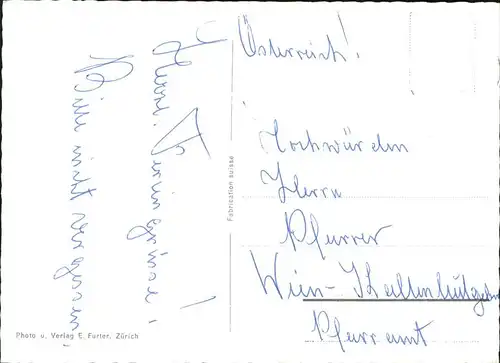 Herzl. Feriengrüsse!
Bitte nicht vergessen!
Fabrication suisse
Österreich!
Hochwürden
Herrn
Pfarrer
Wien-Kaltenleutgeben
Pfarramt
Photo u. Verlag E. Furter, Zürich